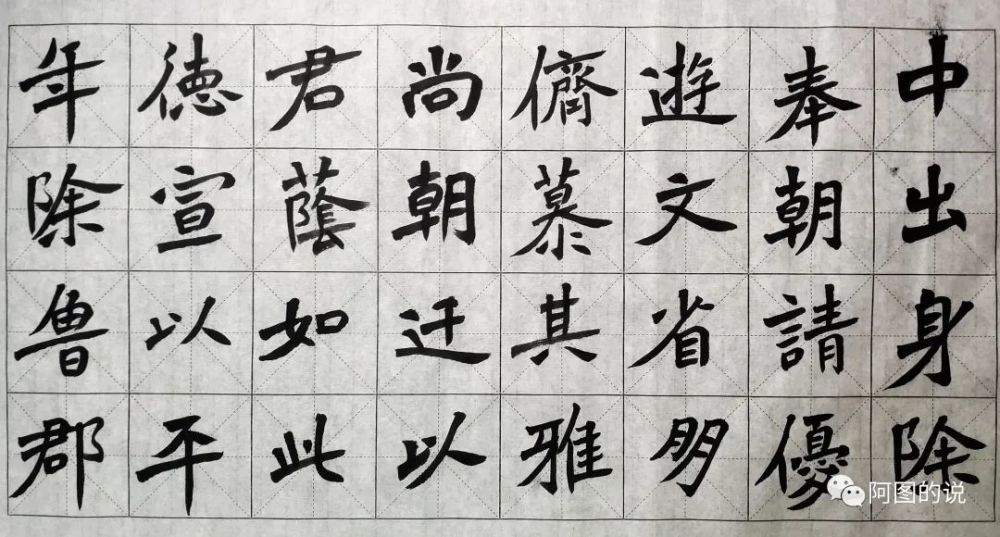 中出身除
奉朝請優
遊文省朋
儕慕其雅
尚朝迁以
君蔭如此
德宣以平
年除魯郡
阿图的说